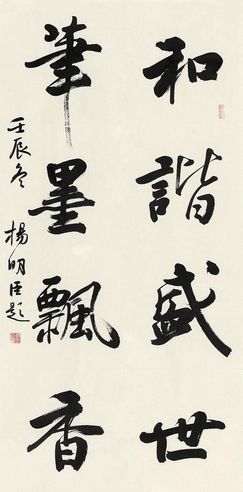 和諧盛世
筆墨飄香
壬辰冬 楊明臣題